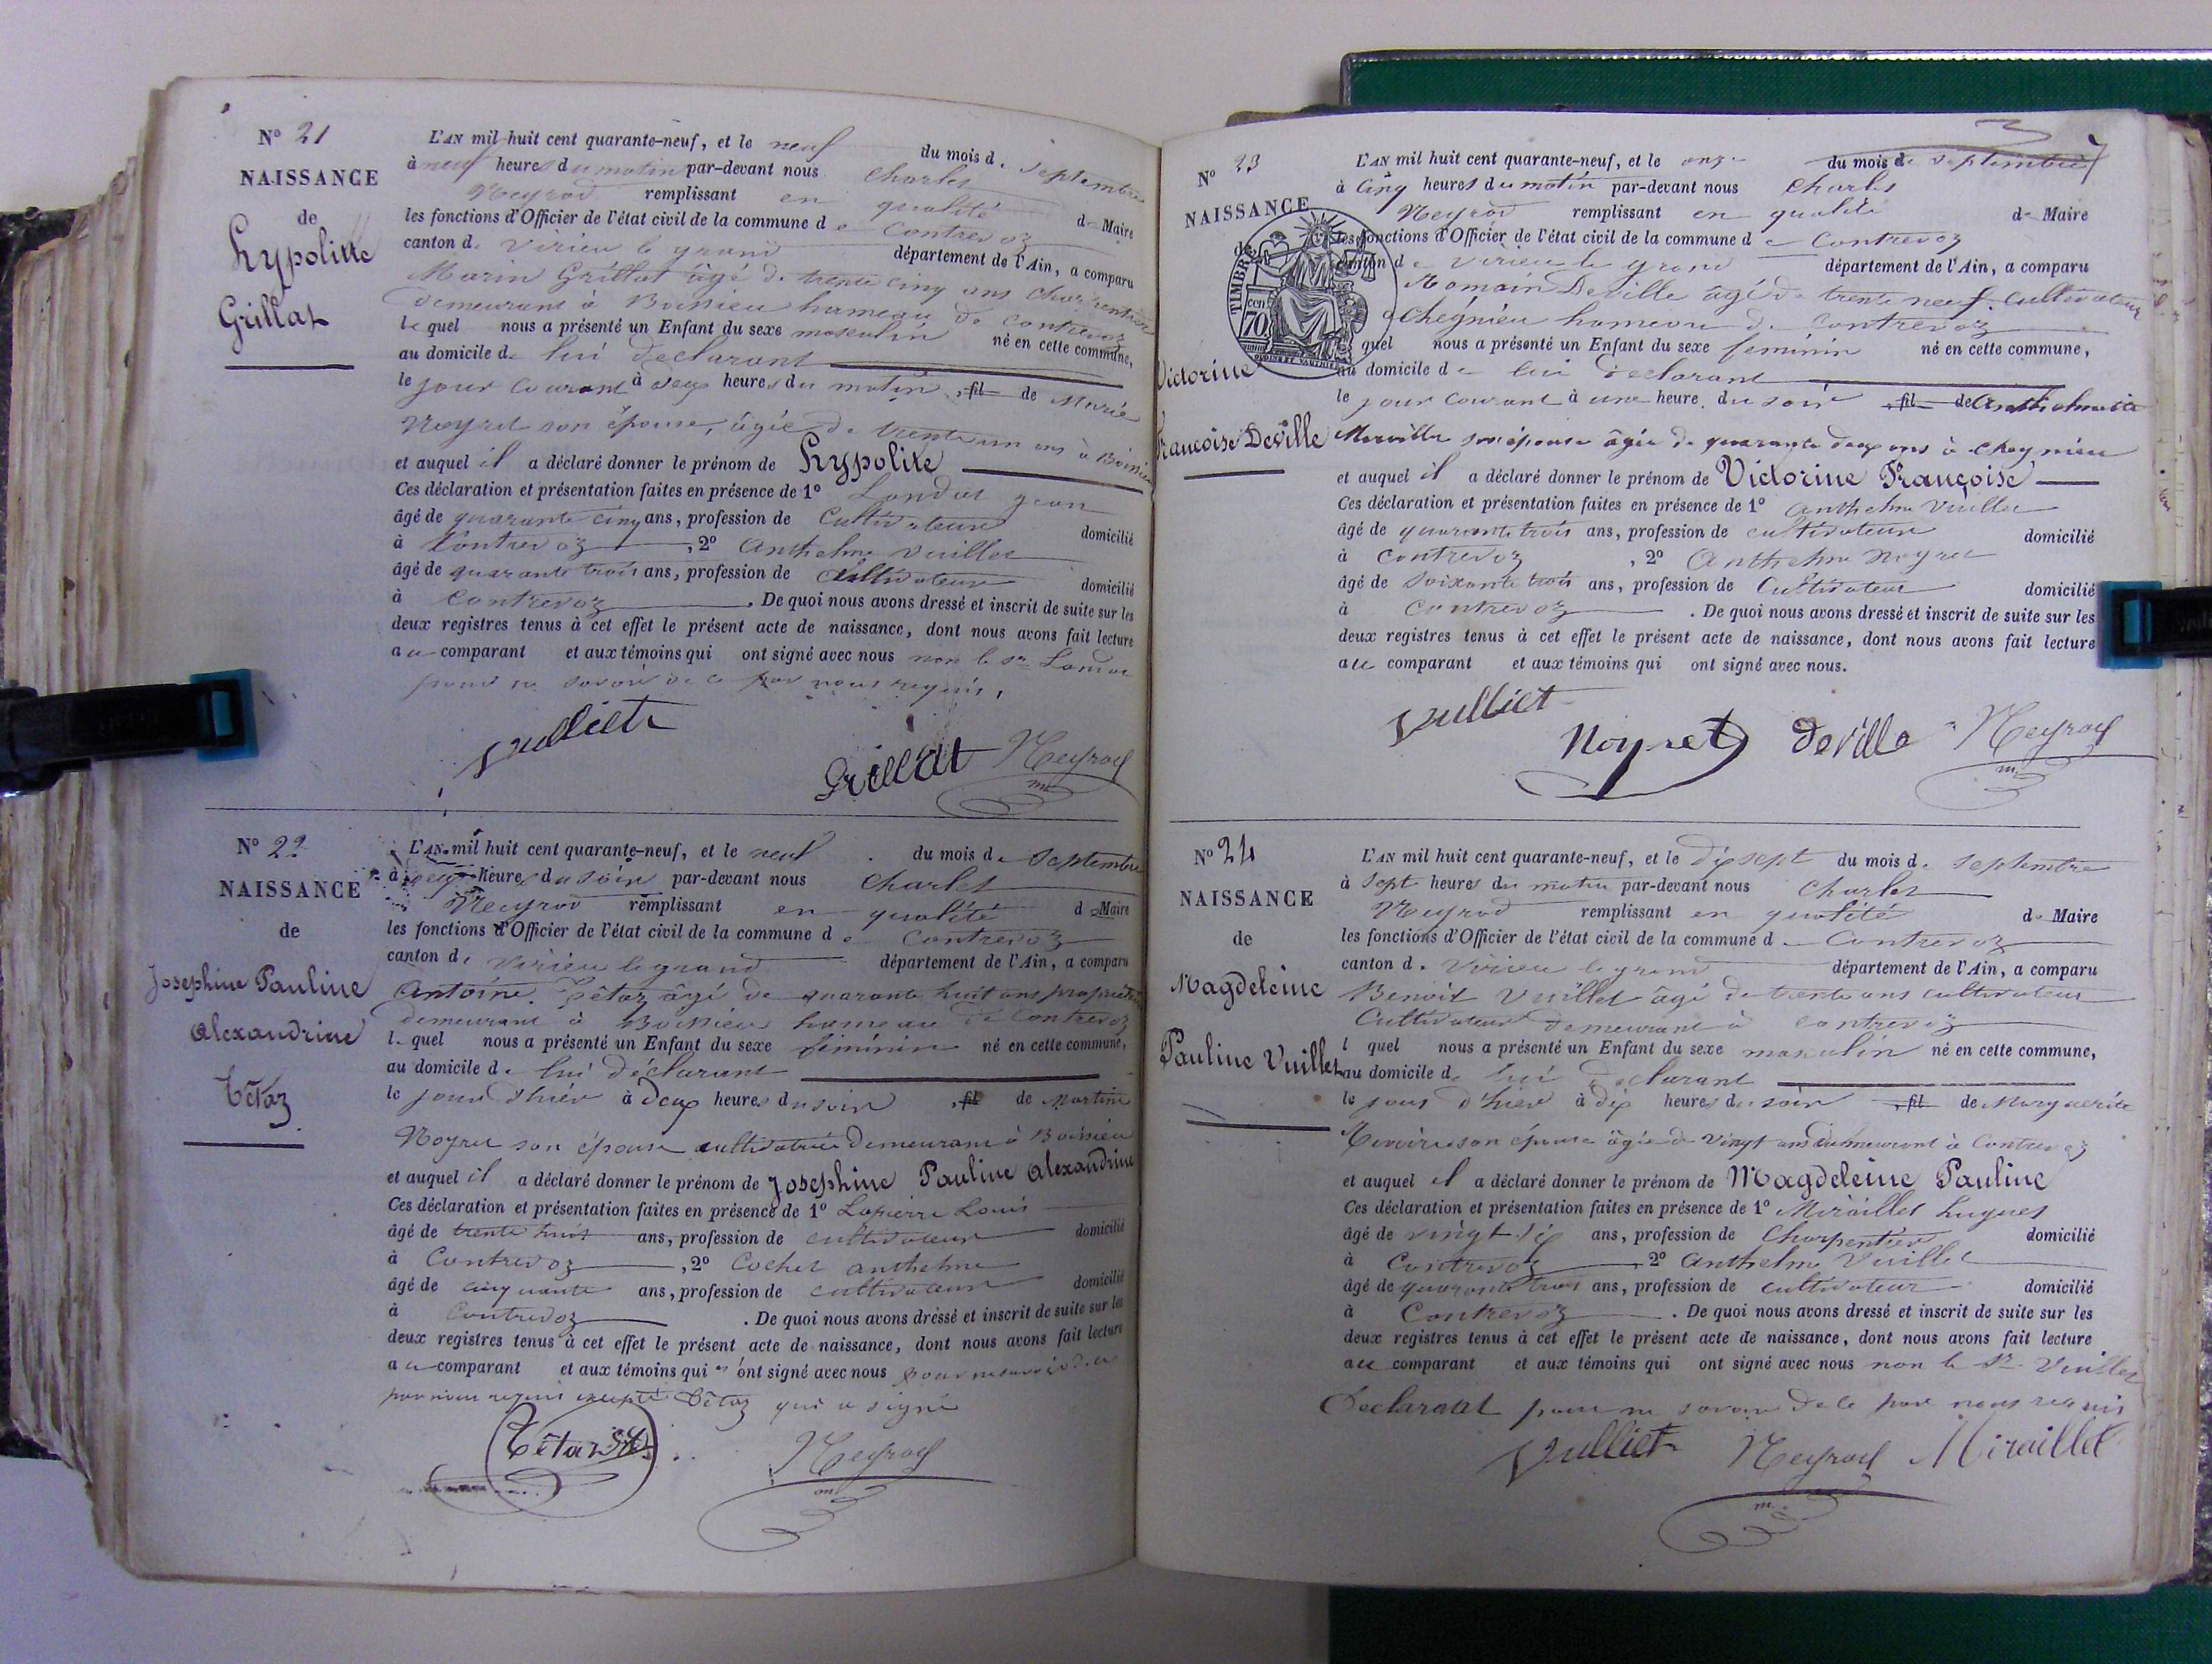 N° 21
NAISSANCE
de
hypolitte
Grillat
L'AN mil huit cent quarante-neuf, et le neuf du mois de Septembre
à neuf heures du matin par-devant nous Charles
Neyrod remplissant en qualité de Maire
les fonctions d'Officier de l'état civil de la commune de Contrevoz
canton de Virieu le grand département de l'Ain, a comparu
Marin Grillat âgé de trente cinq ans Charpentier
demeurant à Boissieu hameau de Contrevoz
lequel nous a présenté un Enfant du sexe masculin né en cette commune,
au domicile de lui declarant
le jour courant à deux heures du matin, fil de Marie
Neyret son épouse, âgée de trente un ans à Boissieu
et auquel il a déclaré donner le prénom de hypolite
Ces déclaration et présentation faites en présence de 1° Landot jean
âgé de quarante cinq ans, profession de Cultivateur domicilié
à Contrevoz, 2° Anthelme Vuillet
âgé de quarante trois ans, profession de Cultivateur domicilié
à Contrevoz. De quoi nous avons dressé et inscrit de suite sur les
deux registres tenus à cet effet le présent acte de naissance, dont nous avons fait lecture
au comparant et aux témoins qui ont signé avec nous non le Sr Landot
pour ne savoir de ce par nous requis,
Vulliet
Grillat Neyrod
m
N° 22
NAISSANCE
de
Josephine Pauline
Alexandrine
Tétaz
L'AN mil huit cent quarante-neuf, et le neuf du mois de Septembre
à deux heures du soir par-devant nous Charles
Neyrod remplissant en qualité de Maire
les fonctions d'Officier de l'état civil de la commune de Contrevoz
canton de Virieu le grand département de l'Ain, a comparu
Antoine Têtaz âgé de quarante huit ans propriétaire
demeurant à Boissieu hameau de Contrevoz
lequel nous a présenté un Enfant du sexe féminin né en cette commune,
au domicile de lui déclarant
le jour d'hier à deux heures du soir, fil de Martine
Noyret son épouse cultivatrice demeurant à Boissieu
et auquel il a déclaré donner le prénom de Josephine Pauline Alexandrine
Ces déclaration et présentation faites en présence de 1° Lapierre Louis
âgé de trente huit ans, profession de cultivateur domicilié
à Contrevoz, 2° Cochet anthelme
âgé de cinquante ans, profession de cultivateur domicilié
à Contrevoz. De quoi nous avons dressé et inscrit de suite sur les
deux registres tenus à cet effet le présent acte de naissance, dont nous avons fait lecture
au comparant et aux témoins qui n'ont signé avec nous pour ne savoir de ce
par nous requis excepté Têtaz qui a signé
Tétaz
Neyrod
m
7
N° 23
NAISSANCE
de
TIMBRE
CEN
70
Victorine
francoise Deville
L'AN mil huit cent quarante-neuf, et le onze du mois de septembre
à cinq heures du matin par-devant nous Charles
Neyrod remplissant en qualité de Maire
les fonctions d'Officier de l'état civil de la commune de Contrevoz
canton de Virieu le grand département de l'Ain, a comparu
Romain Deville âgé de trente neuf cultivateur
a Cheignieu hameau de Contrevoz
le quel nous a présenté un Enfant du sexe feminin né en cette commune,
au domicile de lui declarant
le jour courant à une heure du soir, fil de Anthelmette
son épouse âgée de quarante deux ans à Cheignieu
et auquel il a déclaré donner le prénom de Victorine Françoise
Ces déclaration et présentation faites en présence de 1° Anthelme Vuillet
âgé de quarante trois ans, profession de cultivateur domicilié
à Contrevoz, 2° Anthelme Noyret
âgé de soixante trois ans, profession de Cultivateur domicilié
à Contrevoz. De quoi nous avons dressé et inscrit de suite sur les
deux registres tenus à cet effet le présent acte de naissance, dont nous avons fait lecture
au comparant et aux témoins qui ont signé avec nous.
Vulliet
Noyret Deville Neyrod
m
N° 24
NAISSANCE
de
Magdeleine
Pauline Vuillet
L'AN mil huit cent quarante-neuf, et le dix sept du mois de Septembre
à sept heures du matin par-devant nous Charles
Neyrod remplissant en qualité de Maire
les fonctions d'Officier de l'état civil de la commune de Contrevoz
canton de Virieu le grand département de l'Ain, a comparu
Benoit Vuillet âgé de trente ans cultivateur
Cultivateur demeurant à Contrevoz
lquel nous a présenté un Enfant du sexe masculin né en cette commune,
au domicile de lui declarant
le jour d'hier à dix heures du soir, fil de Marguerite
son épouse âgée de vingt ans demeurant à Contrevoz
et auquel il a déclaré donner le prénom de Magdeleine Pauline
Ces déclaration et présentation faites en présence de 1° Miraillet hugues
âgé de vingt six ans, profession de Charpentier domicilié
à Contrevoz, 2° Anthelme Vuillet
âgé de quarante trois ans, profession de cultivateur domicilié
à Contrevoz. De quoi nous avons dressé et inscrit de suite sur les
deux registres tenus à cet effet le présent acte de naissance, dont nous avons fait lecture
au comparant et aux témoins qui ont signé avec nous non le Sr Vuillet
Declarant pour ne savoir de ce par nous requis
Vulliet Neyrod Miraillet
m